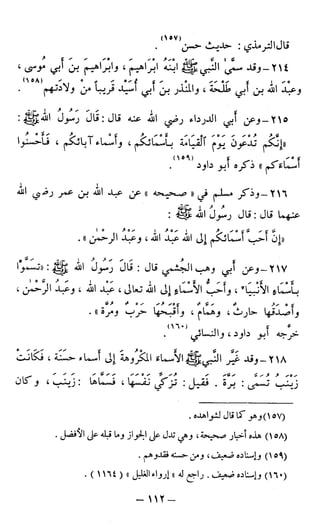 قال الترمذي : حديث حسن (١٥٧) .
٢١٤ - وقد سمَّىٰ النبي ﷺ ابنَهُ ابْراهيمَ ، وابْراهيمَ بنَ أبي موسى ،
وعبْدَ الله بن أبي طلْحَةَ ، والمُنذر بن أبي أُسَيْد قريباً منْ ولادَتهم (١٥٨) .
٢١٥ - وعن أبي الدرداء رضي الله عنه قال : قَالَ رَسُولُ الله ﷺ :
« إِنَّكُم تُدْعَونَ يَوْمَ القيَامَة بأسْمَائكُم ، وأسْماء آبائكُم ، فَأحْسنُوا
أسْمَاءَكم » ذكره أبو داود (١٥٩) .
٢١٦ - وذكر مسلم في « صحيحه » عن عبد الله بن عمر رضي الله
عنهما قال : قال رَسُولُ الله ﷺ :
« إنَّ أحَبَّ أسْمَائكُم إلى الله عَبْدُ الله ، وعَبْدُ الرحْمٰن » .
٢١٧ - وعن أبي وهب الجُشمي قال : قَالَ رَسُولُ الله ﷺ : « تَسمَّوْا
بأسْمَاء الأنْبيَاء ، وأحَبُّ الأسْمَاء إلى الله تعالى ، عَبد الله ، وعَبدُ الرَّحْمٰن ،
وأصْدَقُها حَارثٌ ، وهَمَّامٌ ، وأقْبَحُهَا حَرْبٌ ومُرَّة » .
خرَّجه أبو داود ، والنسائي (١٦٠) .
٢١٨ - وقد غَيَّر النَّبيُّ ﷺ الأسماء المكْروهَةَ إلى أسماء حسَنَة ، فَكَانَتْ
زَيْنَبُ تُسَمَّى : بَرَّةَ . فقيل : تُزكِّي نَفْسَهَا ، فَسَمَّاهَا : زَيْنَبَ ، وكان
(١٥٧) وهو كما قال لشواهده .
(١٥٨) هذه أخبار صحيحة ، وهي تدل على الجواز وما قبله على الأفضل .
(١٥٩) وإسناده ضعيف ، ومن حسنه فقد وهم .
(١٦٠) وإسناده ضعيف . راجع له « إرواء الغليل » ( ١١٦٤ ) .
- ١١٢ -